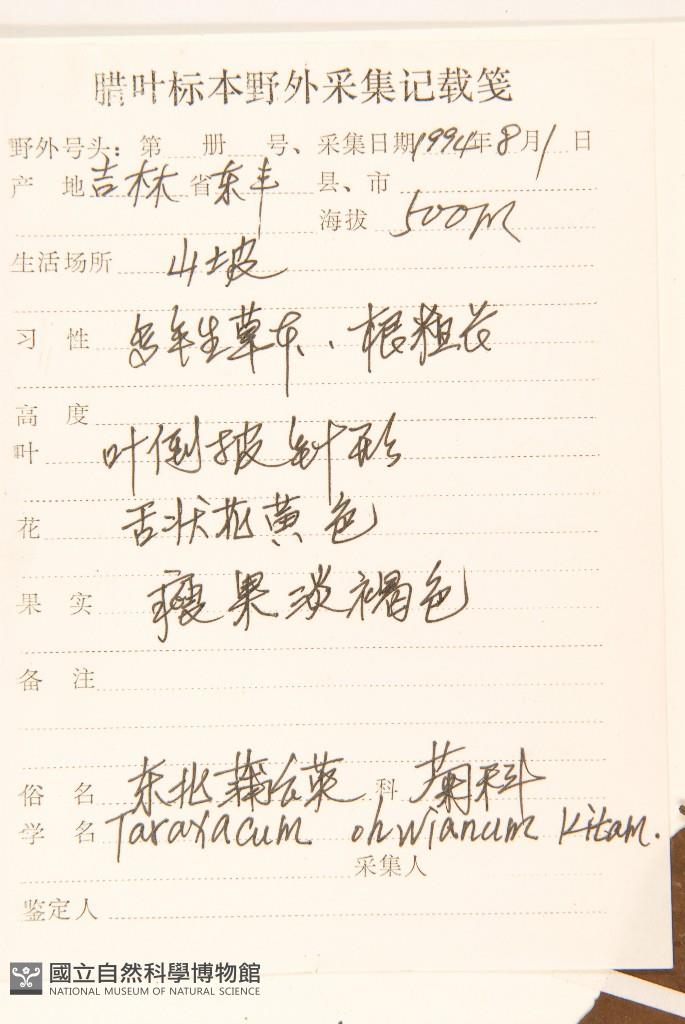 腊叶标本野外采集记载笺
野外号头：第 册 号、采集日期1994年8月1日
产 地 吉林 省 东丰 县、市
海拔 500m
生活场所 山坡
习 性 多年生草本、根粗花
高 度
叶 叶倒披针形
花 舌状花黄色
果 实 瘦果淡褐色
备 注
俗 名 东北蒲公英 科 菊科
学 名 Taraxacum ohwianum Kitam.
采集人
鉴定人
國立自然科學博物館
NATIONAL MUSEUM OF NATURAL SCIENCE